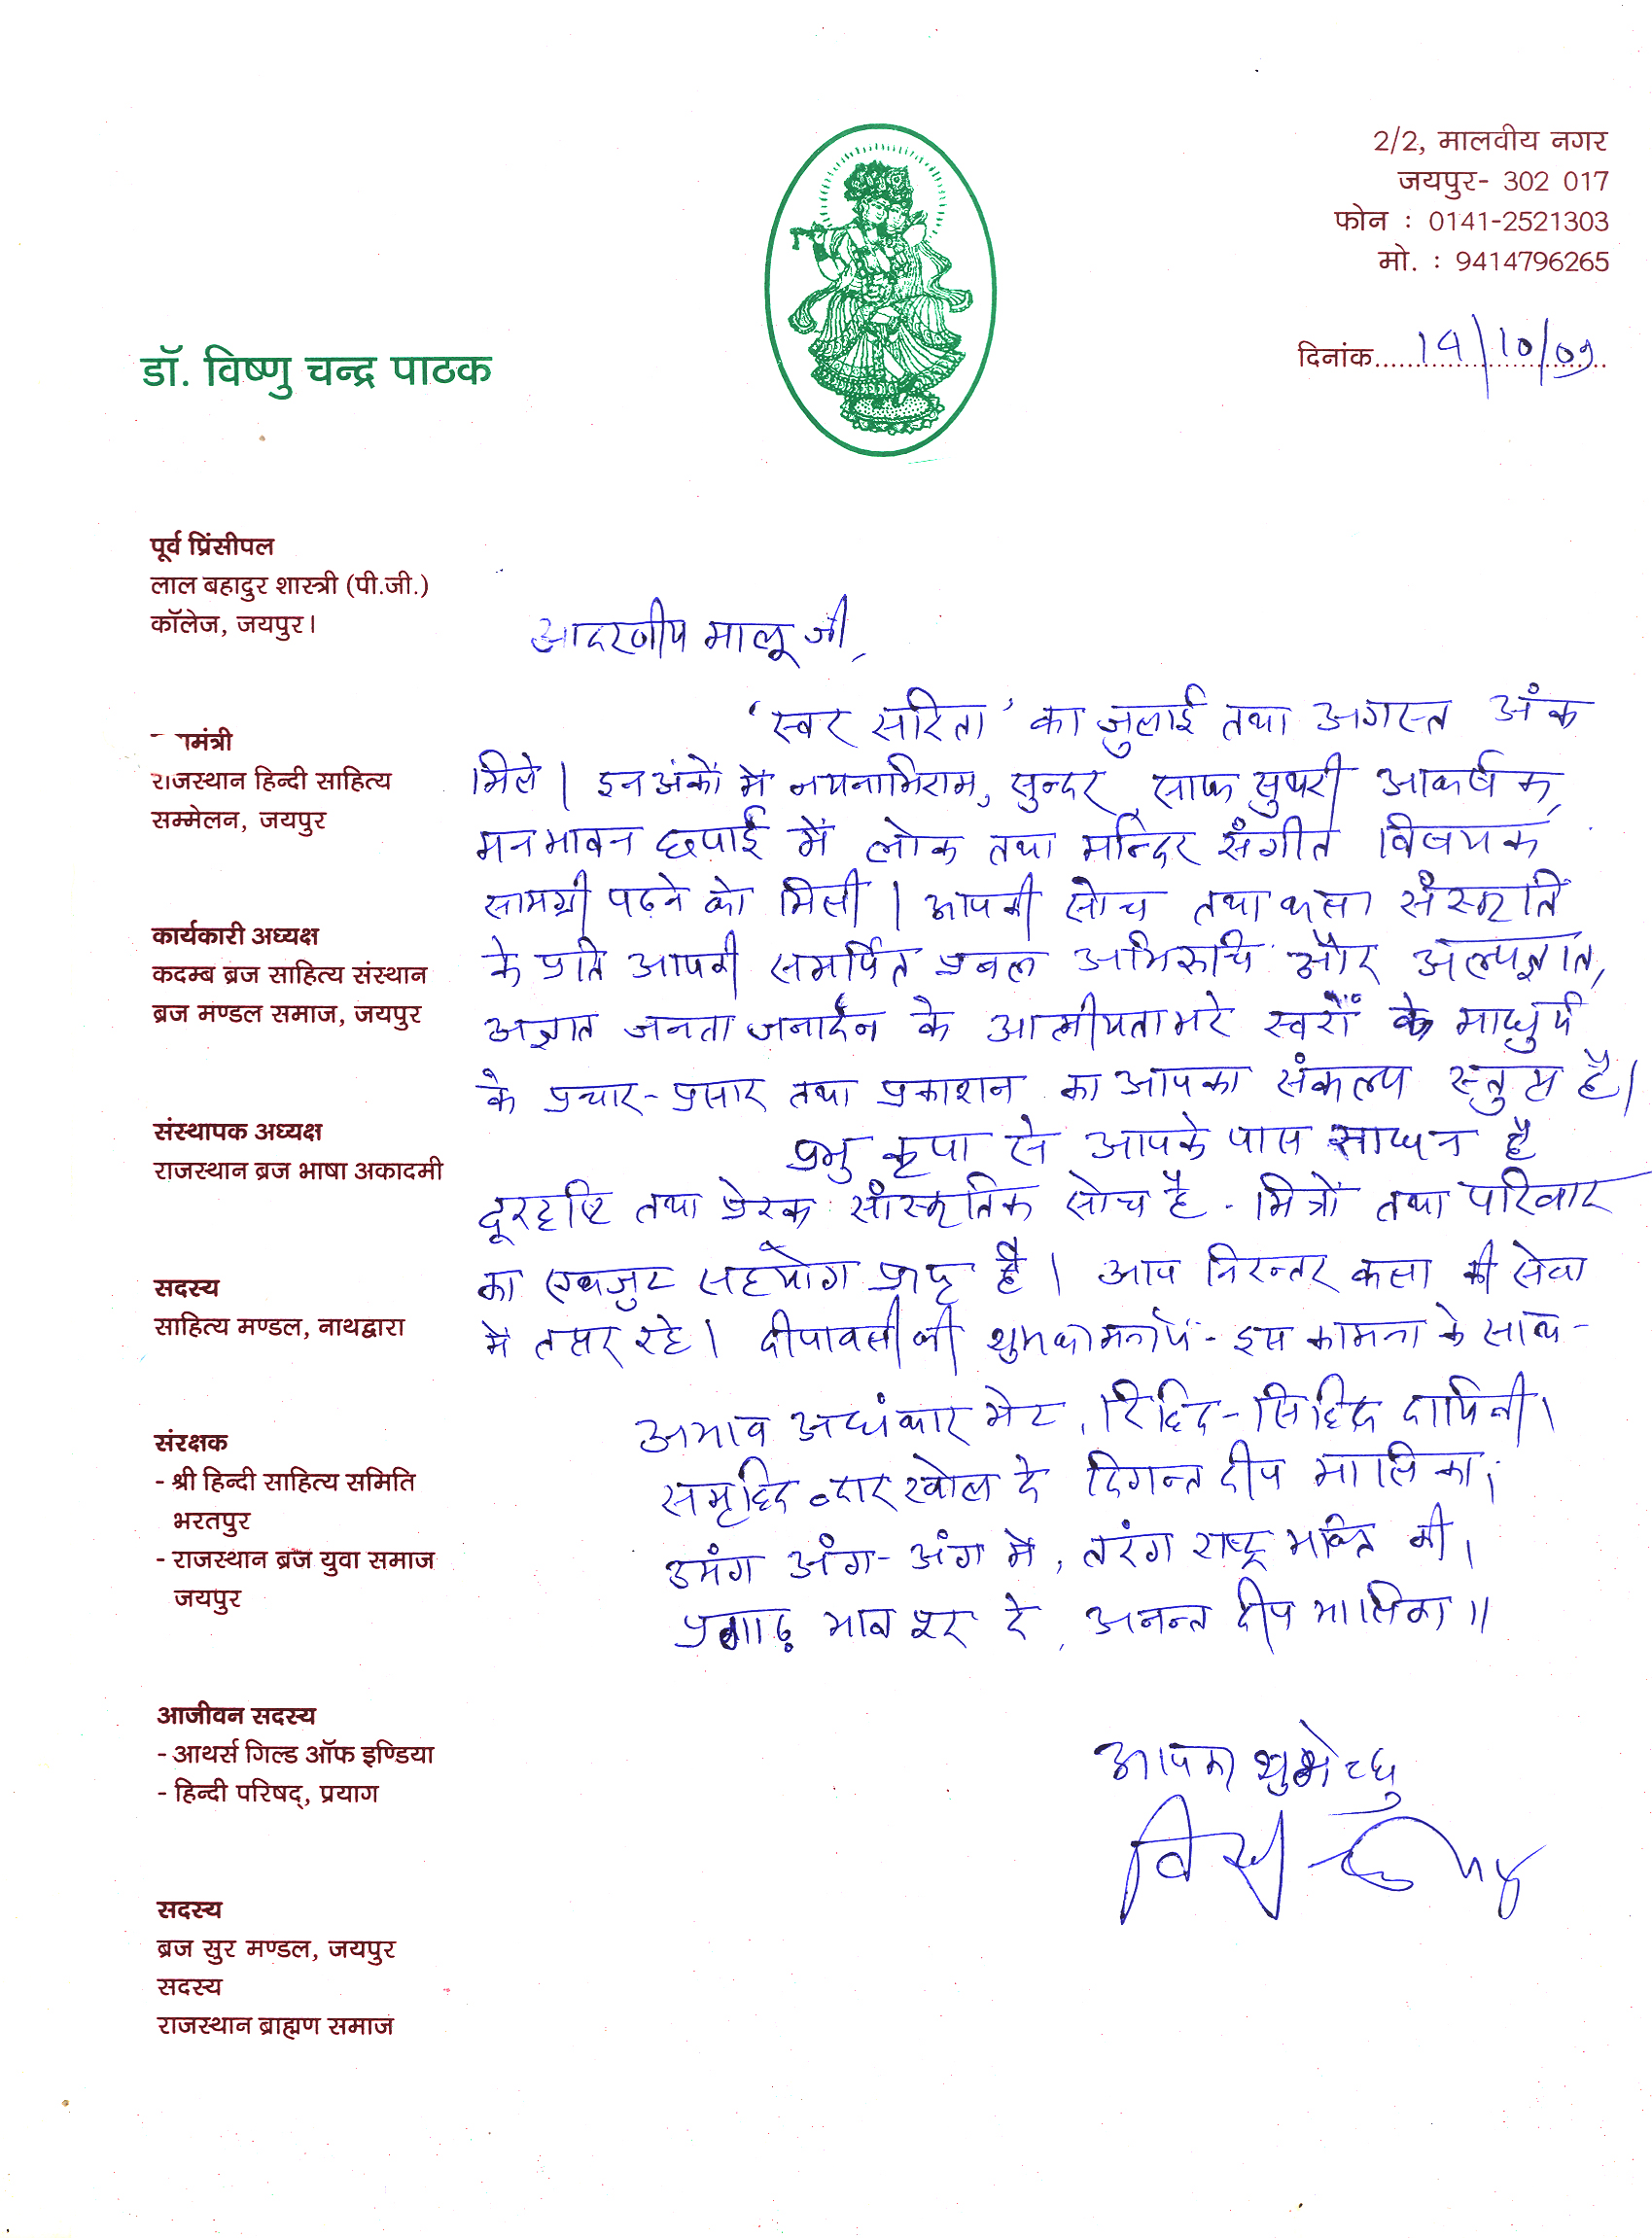 2/2, मालवीय नगर
जयपुर- 302 017
फोन : 0141-2521303
मो. : 9414796265
दिनांक 14/10/09
डॉ. विष्णु चन्द्र पाठक
पूर्व प्रिंसीपल
लाल बहादुर शास्त्री (पी.जी.)
कॉलेज, जयपुर।
मंत्री
राजस्थान हिन्दी साहित्य
सम्मेलन, जयपुर
कार्यकारी अध्यक्ष
कदम्ब ब्रज साहित्य संस्थान
ब्रज मण्डल समाज, जयपुर
संस्थापक अध्यक्ष
राजस्थान ब्रज भाषा अकादमी
सदस्य
साहित्य मण्डल, नाथद्वारा
संरक्षक
- श्री हिन्दी साहित्य समिति
भरतपुर
- राजस्थान ब्रज युवा समाज
जयपुर
आजीवन सदस्य
- आथर्स गिल्ड ऑफ इण्डिया
- हिन्दी परिषद्, प्रयाग
सदस्य
ब्रज सुर मण्डल, जयपुर
सदस्य
राजस्थान ब्राह्मण समाज
आदरणीय मालू जी,
'स्वर सरिता' का जुलाई तथा अगस्त अंक
मिले। इन अंकों में नयनाभिराम, सुन्दर, साफ सुथरी आकर्षक,
मनभावन छपाई में लोक तथा मन्दिर संगीत विषयक
सामग्री पढ़ने को मिली। आपकी सोच तथा कला संस्कृति
के प्रति आपकी समर्पित प्रबल अभिरूचि और अल्पज्ञात,
अज्ञात जनता जनार्दन के आत्मीयता भरे स्वरों के माधुर्य
के प्रचार-प्रसार तथा प्रकाशन का आपका संकल्प स्तुत्य है।
प्रभु कृपा से आपके पास साधन है
दूरदृष्टि तथा प्रेरक सांस्कृतिक सोच है - मित्रों तथा परिवार
का एकजुट सहयोग प्राप्त है। आप निरन्तर कला की सेवा
में तत्पर रहे। दीपावली की शुभकामनायें - इस कामना के साथ -
अभाव अधंकार मेट, रिद्धि-सिद्धि दायिनी।
समृद्धि द्वार खोल दे दिगन्त दीप मालिका।
उमंग अंग-अंग में, तरंग राष्ट्र भक्ति की।
प्रगाढ़ भाव भर दे, अनन्त दीप मालिका॥
आपका शुभेच्छु